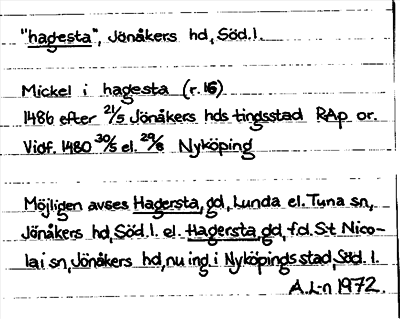 "hagesta", Jönåkers hd, Söd.l.
Mickel i hagesta (r. 16)
1486 efter 21/5 Jönåkers hds tingsstad RAp or.
Vidf. 1480 30/5 el. 29/8 Nyköping
Möjligen avses Hagersta, gd, Lunda el. Tuna sn,
Jönåkers hd, Söd.l. el. Hagersta, gd, f.d. S:t Nico-
lai sn, Jönåkers hd, nu ing. i Nyköpings stad, Söd. l.
A.L-n 1972.